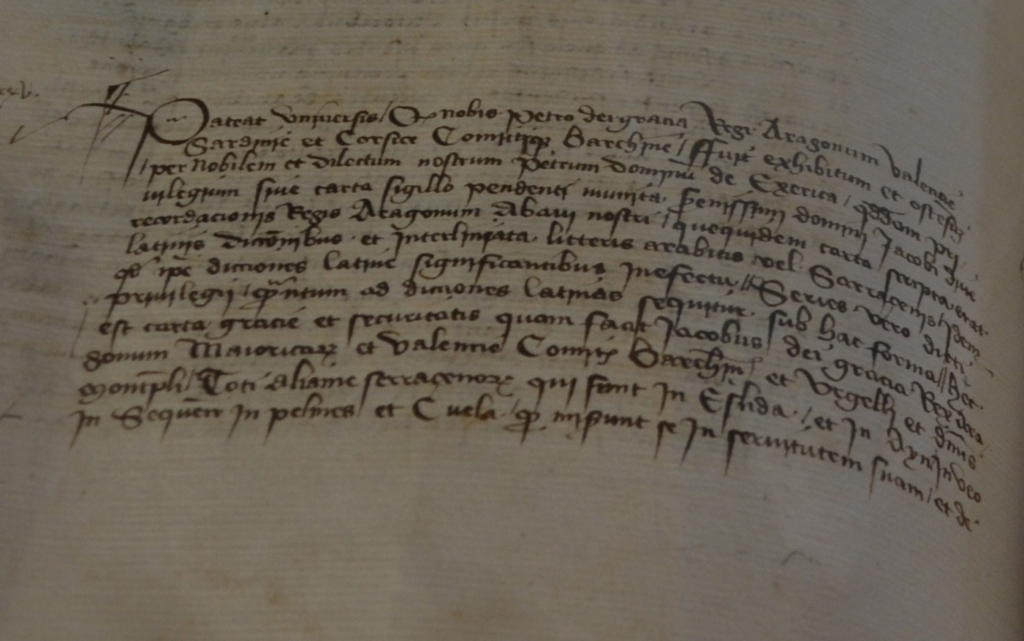 Pateat Universis Q nobis Petro dei gracia Regi Aragonum Valencie
Sardinie et Corsice Comitiqz Barchine ffuit exhibitum et ostensu
per nobilem et dilectum nostrum Petrum dominu de Exerica qddem pri
uilegium siue carta sigillo pendenti munita Serenissimi domini Jacobi diue
recordacionis Regis Aragonum Abaui nostri quequidem carta scripta erat
latinis diccionibus et interliniata litteris arabicis vel Sarracenis idem
qd ipse dicciones latine significantibus in efectu Series vero dicti
priuilegii quntum ad dicciones latinas sequitur sub hac forma Hec
est carta gracie et securitatis quam facit Jacobus dei gracia Rex Ara
gonum Maioricarz et Valencie Comes Barchin et Urgelli et dnus
Montispli Toti aliame serracenorz qui sunt in Eslida et in Ayn in Veo
in Sequen in pelmes et Cuela qz miserunt se in seruitutem suam et de